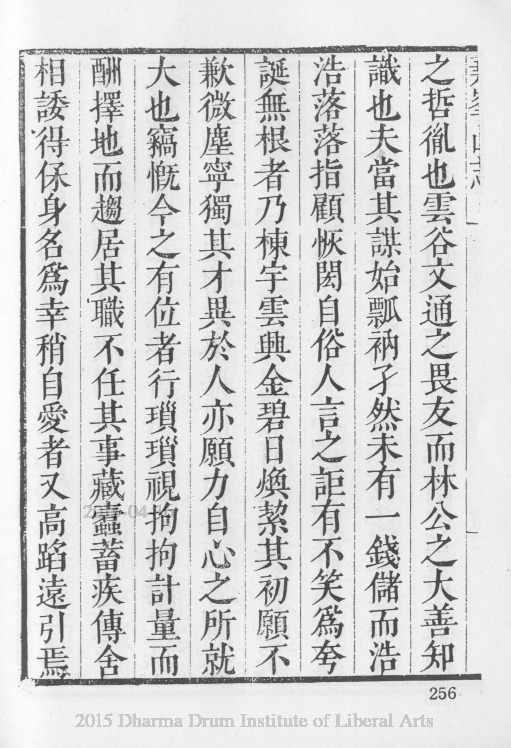 之哲胤也雲谷文通之畏友而林公之大善知
識也夫當其謀始瓢衲孑然未有一錢儲而浩
浩落落指顧恢閎自俗人言之詎有不笑爲夸
誕無根者乃棟宇雲興金碧日煥絜其初願不
歉微塵寧獨其才異於人亦願力自心之所就
大也竊慨今之有位者行瑣瑣視拘拘計量而
酬擇地而趨居其職不任其事藏蠹蓄疾傳舍
相諉得保身名爲幸稍自愛者又高蹈遠引焉
256
2015 Dharma Drum Institute of Liberal Arts